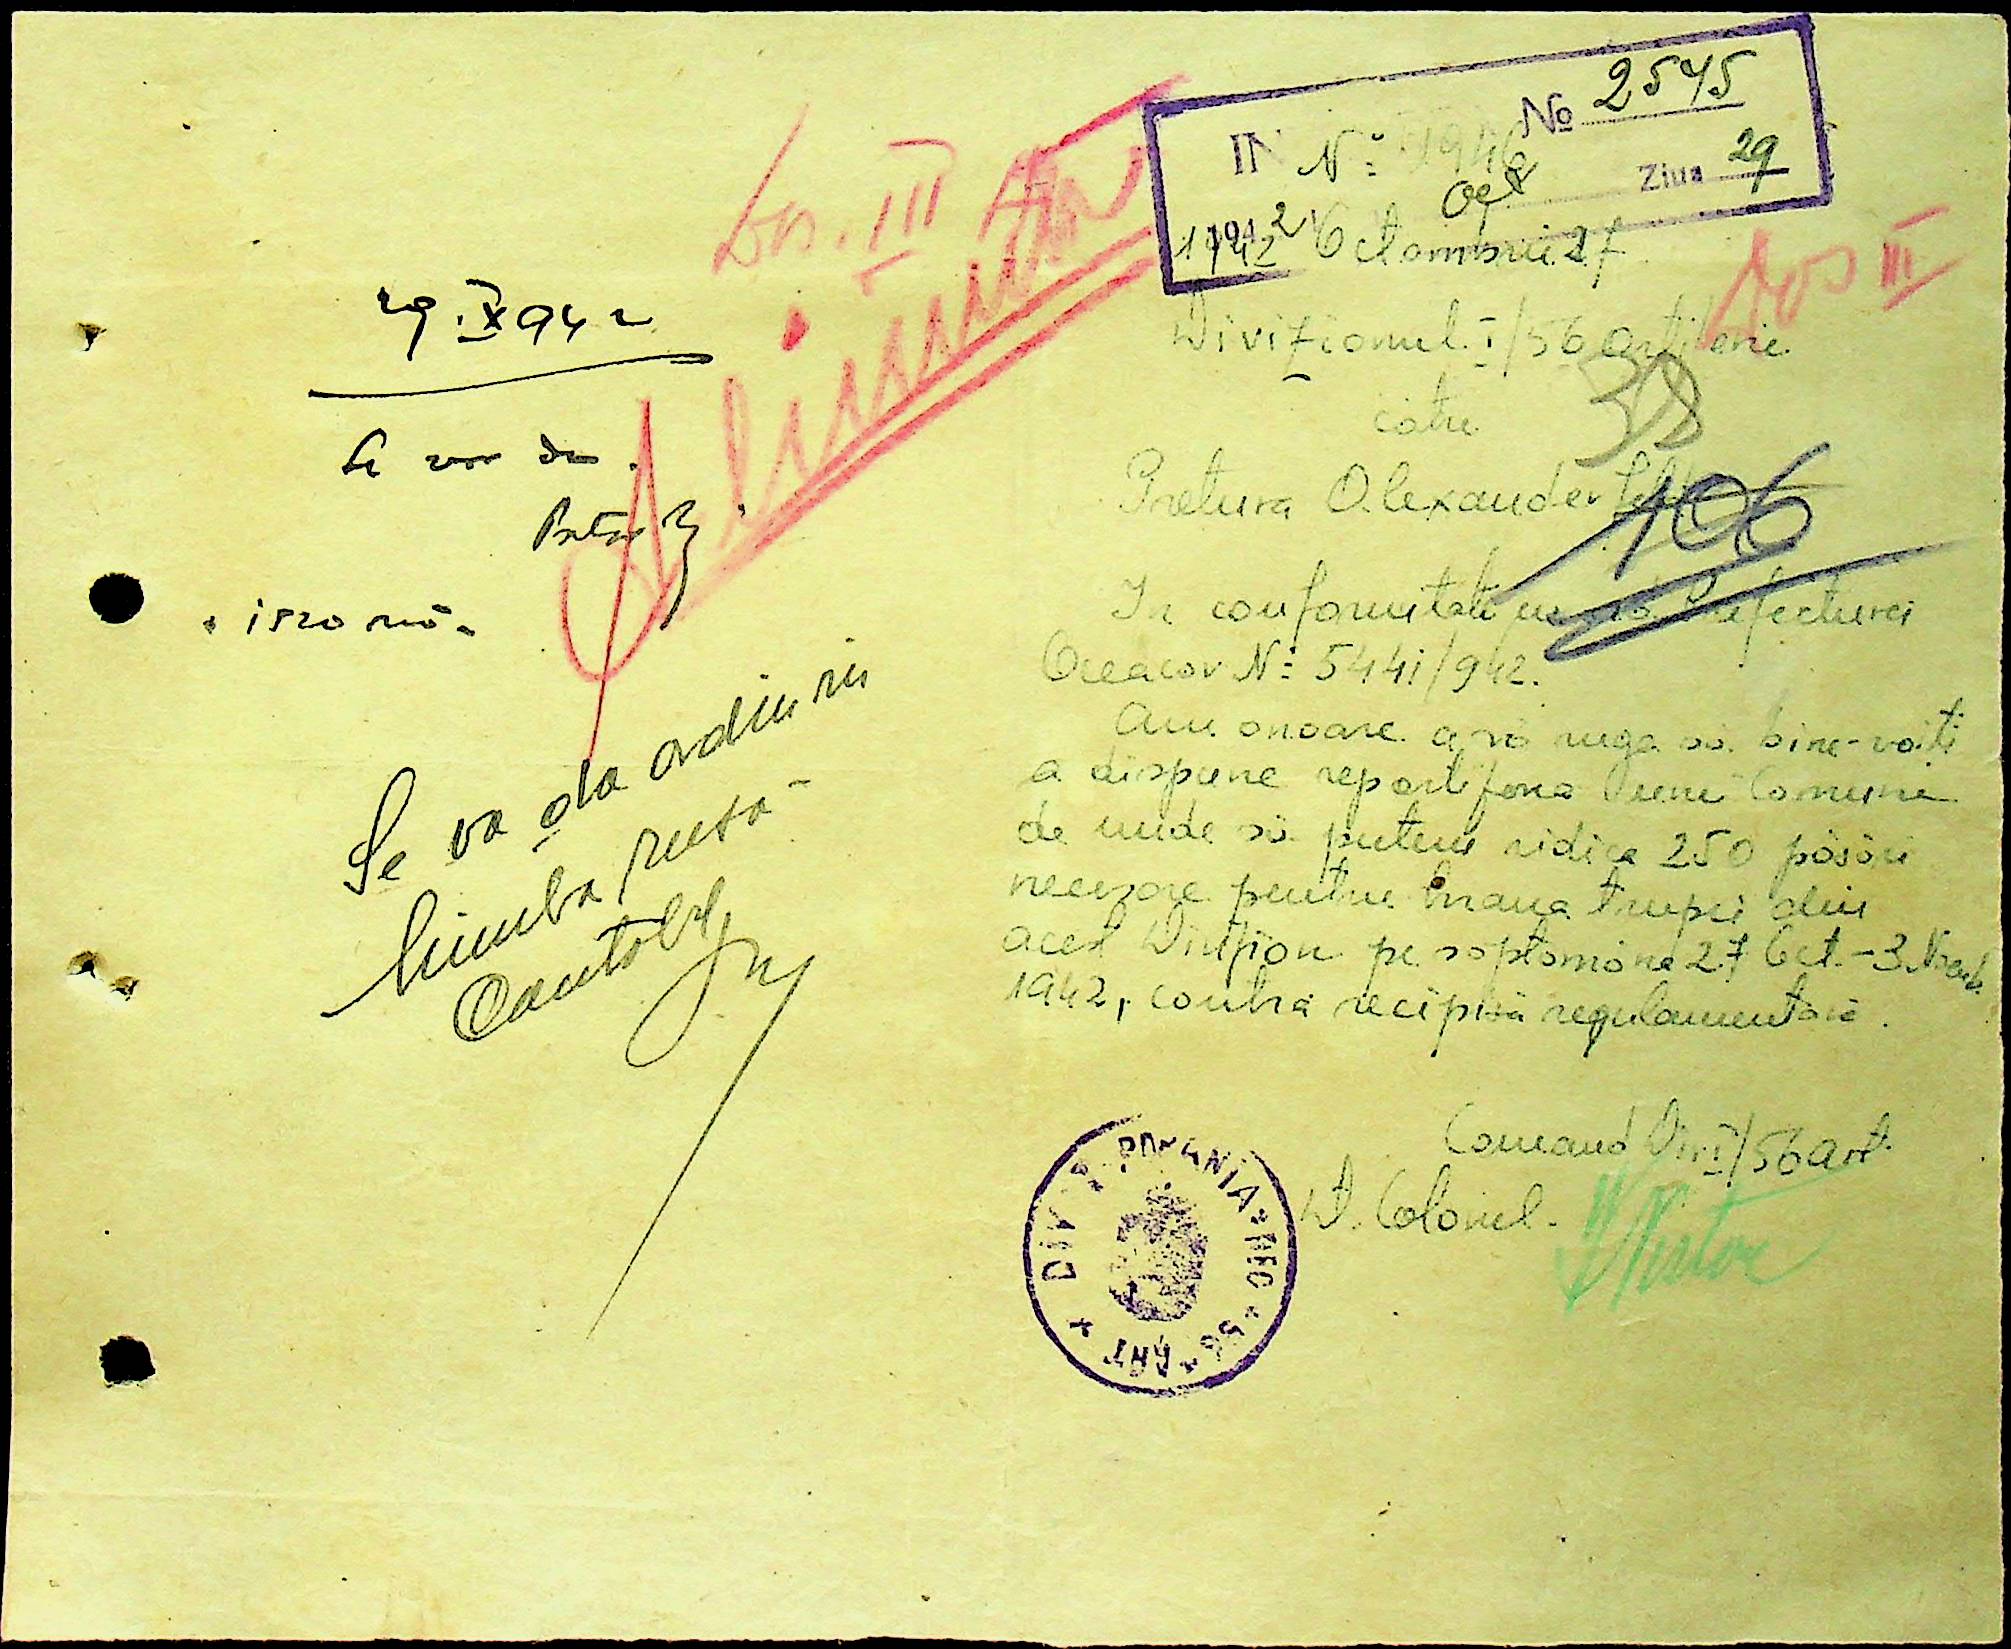 № 2545
IN Nº
Oct Ziua 29
1942 Octombrie 27
Dos. III
Dos III
Divizionul I/56 artilerie
38
către
Pretura Alexanderfeld
106
In conformitate cu Prefecturei
Oceacov Nº 5441/942.
Am onoare a vă ruga să bine-voiți
a dispune repartizarea unei Comune
de unde să putem ridica 250 păsări
necesare pentru hrana trupei din
acest Divizion pe săptămâna 27 Oct.-3 Noemb.
1942, contra recipisă regulamentară.
Comand Div I/56 art.
Lt. Colonel
29.X 942
Se vor da
Se va da ordin în
limba rusă
DIV. ROMANIA REG. 56 ART